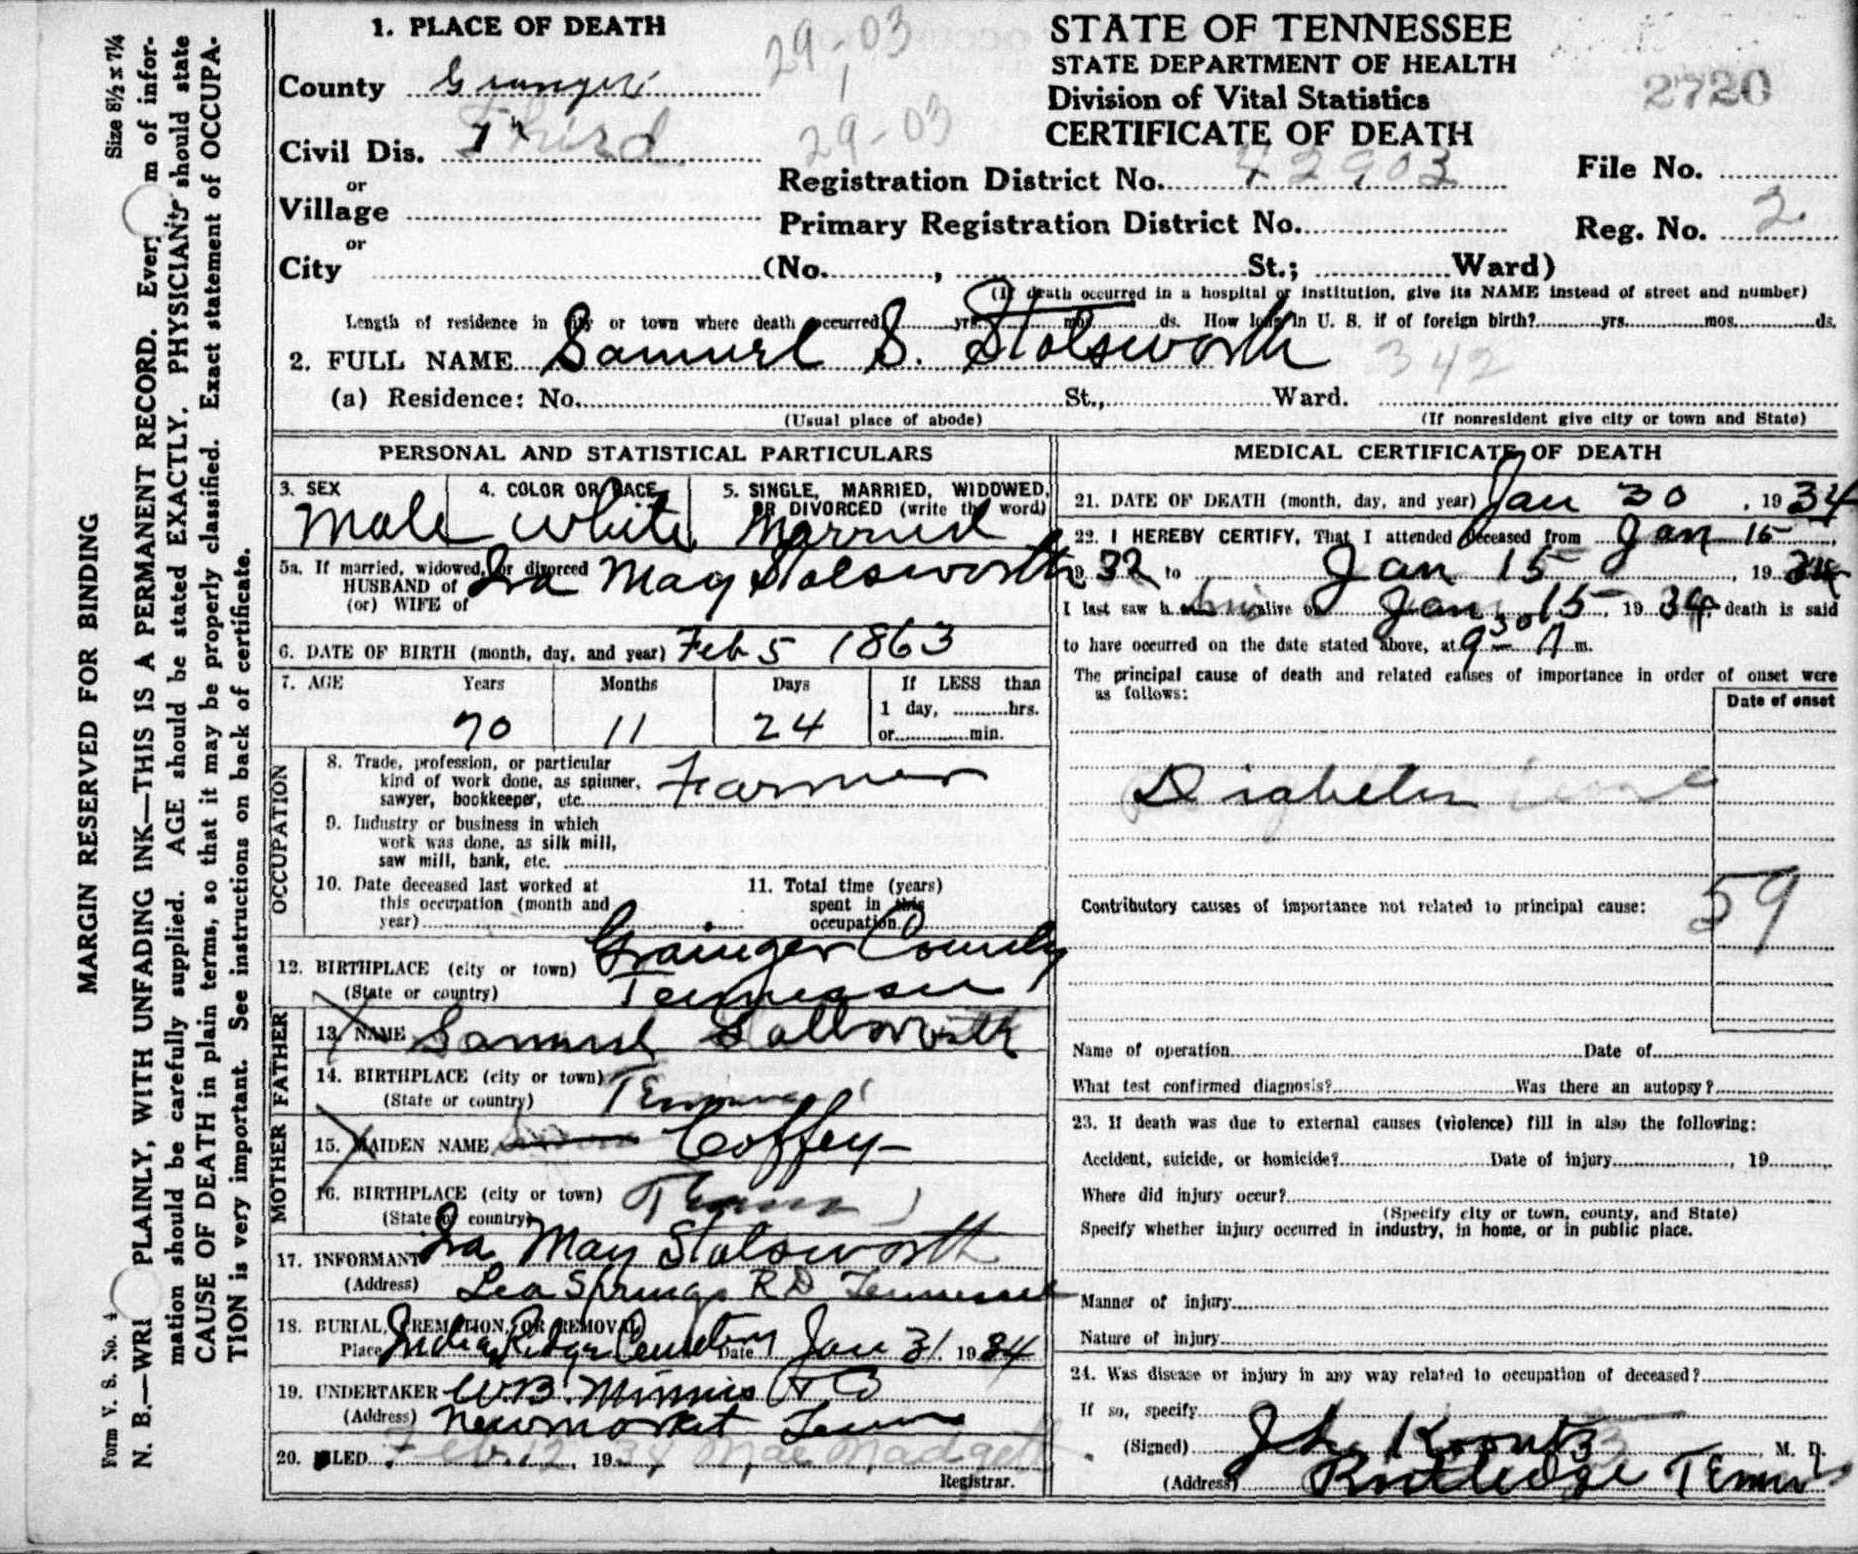 1. PLACE OF DEATH
County Grainger
29-03
Civil Dis. 7th Third
29-03
or
Village
or
City (No. , St.; Ward)
STATE OF TENNESSEE
STATE DEPARTMENT OF HEALTH
Division of Vital Statistics
CERTIFICATE OF DEATH
2720
Registration District No. 42903
File No.
Primary Registration District No.
Reg. No. 2
(If death occurred in a hospital or institution, give its NAME instead of street and number)
Length of residence in city or town where death occurred yrs. mos. ds. How long in U. S. if of foreign birth? yrs. mos. ds.
2. FULL NAME Samuel S. Stolsworth
342
(a) Residence: No. St., Ward.
(Usual place of abode) (If nonresident give city or town and State)
PERSONAL AND STATISTICAL PARTICULARS
3. SEX
Male
4. COLOR OR RACE
White
5. SINGLE, MARRIED, WIDOWED, OR DIVORCED (write the word)
Married
5a. If married, widowed, or divorced
HUSBAND of
(or) WIFE of
Ira May Stolsworth
6. DATE OF BIRTH (month, day, and year) Feb 5 1863
7. AGE Years Months Days If LESS than
1 day, hrs.
or min.
70 11 24
OCCUPATION
8. Trade, profession, or particular
kind of work done, as spinner,
sawyer, bookkeeper, etc.
Farmer
9. Industry or business in which
work was done, as silk mill,
saw mill, bank, etc.
10. Date deceased last worked at
this occupation (month and
year)
11. Total time (years)
spent in this
occupation
12. BIRTHPLACE (city or town) Grainger County
(State or country) Tennessee
FATHER
13. NAME Samuel
14. BIRTHPLACE (city or town)
(State or country)
MOTHER
15. MAIDEN NAME Coffey
16. BIRTHPLACE (city or town)
(State or country)
17. INFORMANT Ira May Stolsworth
(Address) Lea Springs RD Tennessee
18. BURIAL, CREMATION, OR REMOVAL
Place Indian Ridge Cemetery Date Jan 31, 1934
19. UNDERTAKER W.B. Minnis & Co
(Address) Newmarket Tenn
20. FILED Feb. 12, 1934 Mae Madgett
Registrar.
MEDICAL CERTIFICATE OF DEATH
21. DATE OF DEATH (month, day, and year) Jan 30, 1934
22. I HEREBY CERTIFY, That I attended deceased from Jan 15,
1932 to Jan 15, 1934
I last saw him alive on Jan, 15, 1934, death is said
to have occurred on the date stated above, at 9 30 A m.
The principal cause of death and related causes of importance in order of onset were
as follows:
Date of onset
Diabetes
59
Contributory causes of importance not related to principal cause:
Name of operation Date of
What test confirmed diagnosis? Was there an autopsy?
23. If death was due to external causes (violence) fill in also the following:
Accident, suicide, or homicide? Date of injury , 19
Where did injury occur?
(Specify city or town, county, and State)
Specify whether injury occurred in industry, in home, or in public place.
Manner of injury
Nature of injury
24. Was disease or injury in any way related to occupation of deceased?
If so, specify
(Signed) Koontz, M. D.
(Address) Rutledge Tenn
MARGIN RESERVED FOR BINDING
Form V. S. No. 4
Size 8½ x 7¼
N. B.—WRI PLAINLY, WITH UNFADING INK—THIS IS A PERMANENT RECORD. Every m of infor-
mation should be carefully supplied. AGE should be stated EXACTLY. PHYSICIANS should state
CAUSE OF DEATH in plain terms, so that it may be properly classified. Exact statement of OCCUPA-
TION is very important. See instructions on back of certificate.